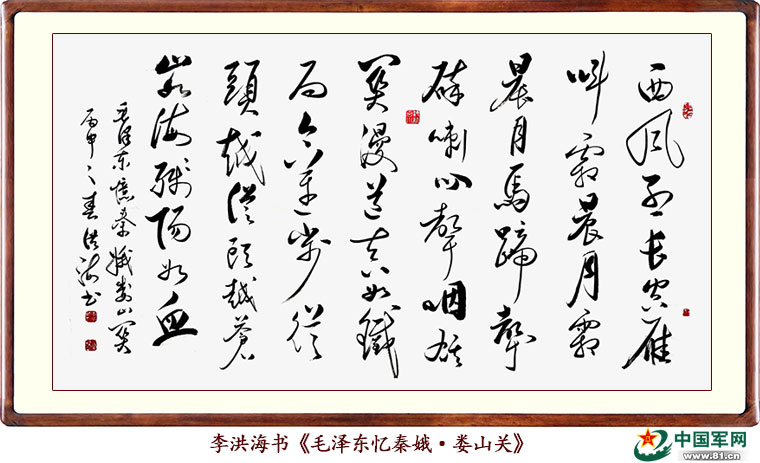 西风烈长空雁
叫霜晨月霜
晨月馬蹄聲
碎喇叭聲咽雄
关漫道真如鐵
而今迈步從
頭越從頭越蒼
山如海殘陽如血
毛泽东憶秦娥娄山关
丙申之春洪海书
李洪海书《毛泽东忆秦娥·娄山关》
中国军网
www.81.cn